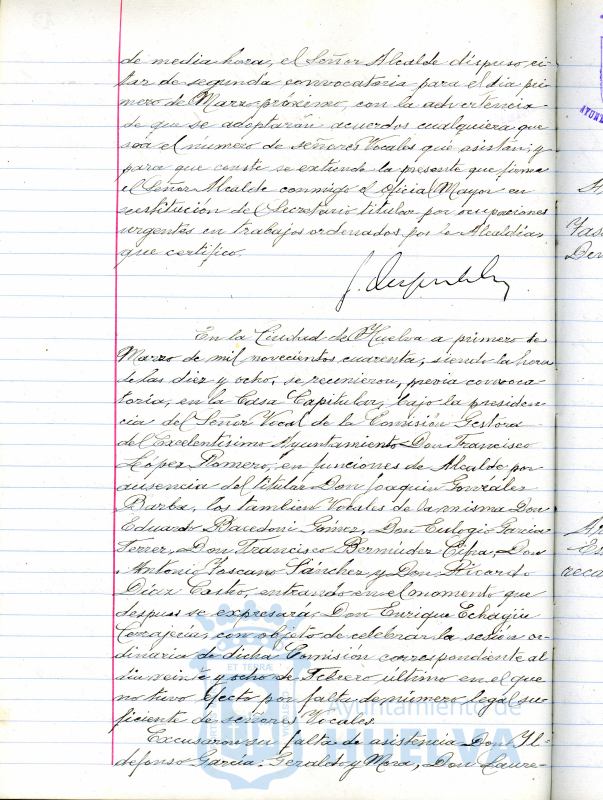 de media hora, el Señor Alcalde dispuso ci-
tar de segunda convocatoria para el dia pri-
mero de Marzo próximo, con la advertencia
de que se adoptarán acuerdos cualquiera que
sea el numero de señores Vocales que asistan; y
para que conste se extiende la presente que firma
el Señor Alcalde conmigo el Oficial Mayor en
sustitución del Secretario titular por ocupaciones
urgentes en trabajos ordenados por la Alcaldía,
que certifico.
En la Ciudad de Huelva a primero de
Marzo de mil novecientos cuarenta, siendo la hora
de las diez y ocho, se reunieron, previa convoca-
toria, en la Casa Capitular, bajo la presiden-
cia del Señor Vocal de la Comisión Gestora
del Excelentísimo Ayuntamiento Don Francisco
López Romero, en funciones de Alcalde por
ausencia del titular Don Joaquin González
Barba, los tambien Vocales de la misma Don
Eduardo Bacedoni Gómez, Don Eulogio Garcia
Ferrer, Don Francisco Bermudez Cipa, Don
Antonio Toscano Sánchez y Don Ricardo
Diaz Castro, entrando en el momento que
despues se expresará Don Enrique Echagüe
con objeto de celebrar la sesión or-
dinaria de dicha Comisión correspondiente al
dia veinte y ocho de Febrero último en el que
no tuvo efecto por falta de número legal su-
ficiente de señores Vocales.
Excusaron su falta de asistencia Don Il-
defonso Garcia-Geraldo y Mora, Don Laure-
ET TERRÆ
Ayuntamiento de
HUELVA